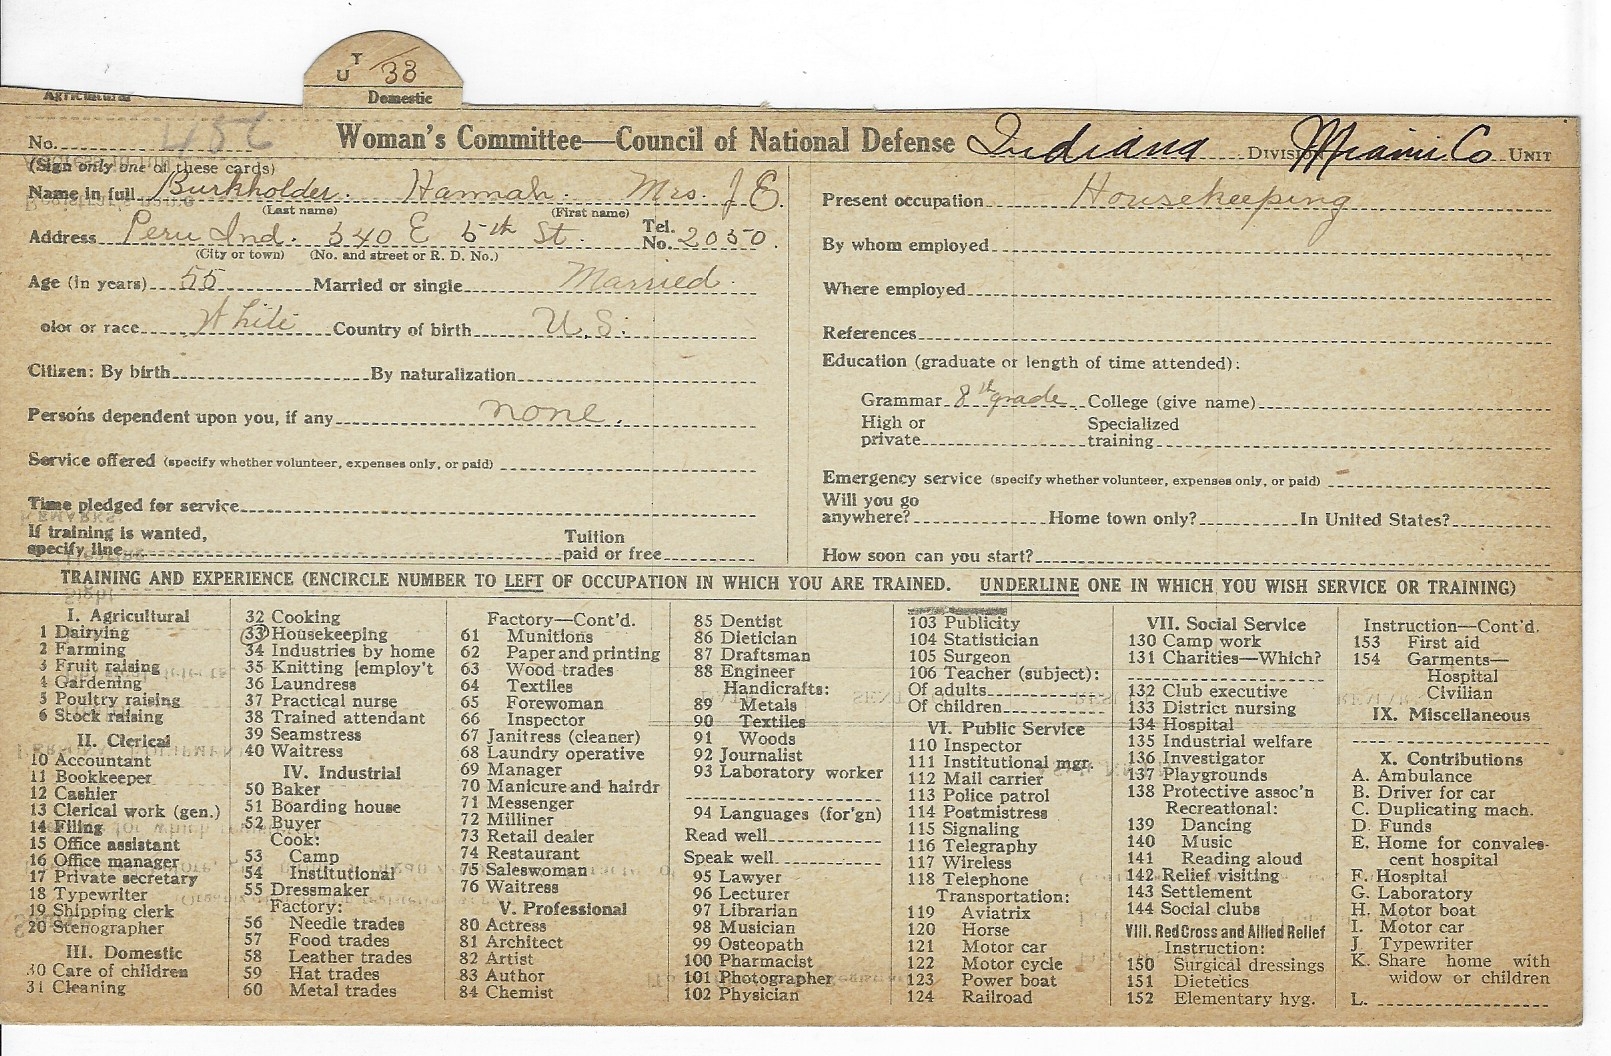 T
U 33
Agricultural
Domestic
No. 456 Woman's Committee—Council of National Defense Indiana DIVISION Miami Co UNIT
(Sign only one of these cards)
Name in full Burkholder. Hannah. Mrs. J E.
(Last name) (First name)
Address Peru Ind. 540 E 5th St. Tel. No. 2050.
(City or town) (No. and street or R. D. No.)
Age (in years) 55 Married or single Married.
olor or race White Country of birth U.S.
Citizen: By birth By naturalization
Persons dependent upon you, if any none.
Service offered (specify whether volunteer, expenses only, or paid)
Time pledged for service
If training is wanted, specify line Tuition paid or free
Present occupation Housekeeping
By whom employed
Where employed
References
Education (graduate or length of time attended):
Grammar 8th grade College (give name)
High or private Specialized training
Emergency service (specify whether volunteer, expenses only, or paid)
Will you go anywhere? Home town only? In United States?
How soon can you start?
TRAINING AND EXPERIENCE (ENCIRCLE NUMBER TO LEFT OF OCCUPATION IN WHICH YOU ARE TRAINED. UNDERLINE ONE IN WHICH YOU WISH SERVICE OR TRAINING)
I. Agricultural
1 Dairying
2 Farming
3 Fruit raising
4 Gardening
5 Poultry raising
6 Stock raising
II. Clerical
10 Accountant
11 Bookkeeper
12 Cashier
13 Clerical work (gen.)
14 Filing
15 Office assistant
16 Office manager
17 Private secretary
18 Typewriter
19 Shipping clerk
20 Stenographer
III. Domestic
30 Care of children
31 Cleaning
32 Cooking
33 Housekeeping
34 Industries by home
35 Knitting [employ't
36 Laundress
37 Practical nurse
38 Trained attendant
39 Seamstress
40 Waitress
IV. Industrial
50 Baker
51 Boarding house
52 Buyer
Cook:
53 Camp
54 Institutional
55 Dressmaker
Factory:
56 Needle trades
57 Food trades
58 Leather trades
59 Hat trades
60 Metal trades
Factory—Cont'd.
61 Munitions
62 Paper and printing
63 Wood trades
64 Textiles
65 Forewoman
66 Inspector
67 Janitress (cleaner)
68 Laundry operative
69 Manager
70 Manicure and hairdr
71 Messenger
72 Milliner
73 Retail dealer
74 Restaurant
75 Saleswoman
76 Waitress
V. Professional
80 Actress
81 Architect
82 Artist
83 Author
84 Chemist
85 Dentist
86 Dietician
87 Draftsman
88 Engineer
Handicrafts:
89 Metals
90 Textiles
91 Woods
92 Journalist
93 Laboratory worker
94 Languages (for'gn)
Read well
Speak well
95 Lawyer
96 Lecturer
97 Librarian
98 Musician
99 Osteopath
100 Pharmacist
101 Photographer
102 Physician
103 Publicity
104 Statistician
105 Surgeon
106 Teacher (subject):
Of adults
Of children
VI. Public Service
110 Inspector
111 Institutional mgr.
112 Mail carrier
113 Police patrol
114 Postmistress
115 Signaling
116 Telegraphy
117 Wireless
118 Telephone
Transportation:
119 Aviatrix
120 Horse
121 Motor car
122 Motor cycle
123 Power boat
124 Railroad
VII. Social Service
130 Camp work
131 Charities—Which?
132 Club executive
133 District nursing
134 Hospital
135 Industrial welfare
136 Investigator
137 Playgrounds
138 Protective assoc'n
Recreational:
139 Dancing
140 Music
141 Reading aloud
142 Relief visiting
143 Settlement
144 Social clubs
VIII. Red Cross and Allied Relief
Instruction:
150 Surgical dressings
151 Dietetics
152 Elementary hyg.
Instruction—Cont'd.
153 First aid
154 Garments—
Hospital
Civilian
IX. Miscellaneous
X. Contributions
A. Ambulance
B. Driver for car
C. Duplicating mach.
D. Funds
E. Home for convales-
cent hospital
F. Hospital
G. Laboratory
H. Motor boat
I. Motor car
J. Typewriter
K. Share home with
widow or children
L.